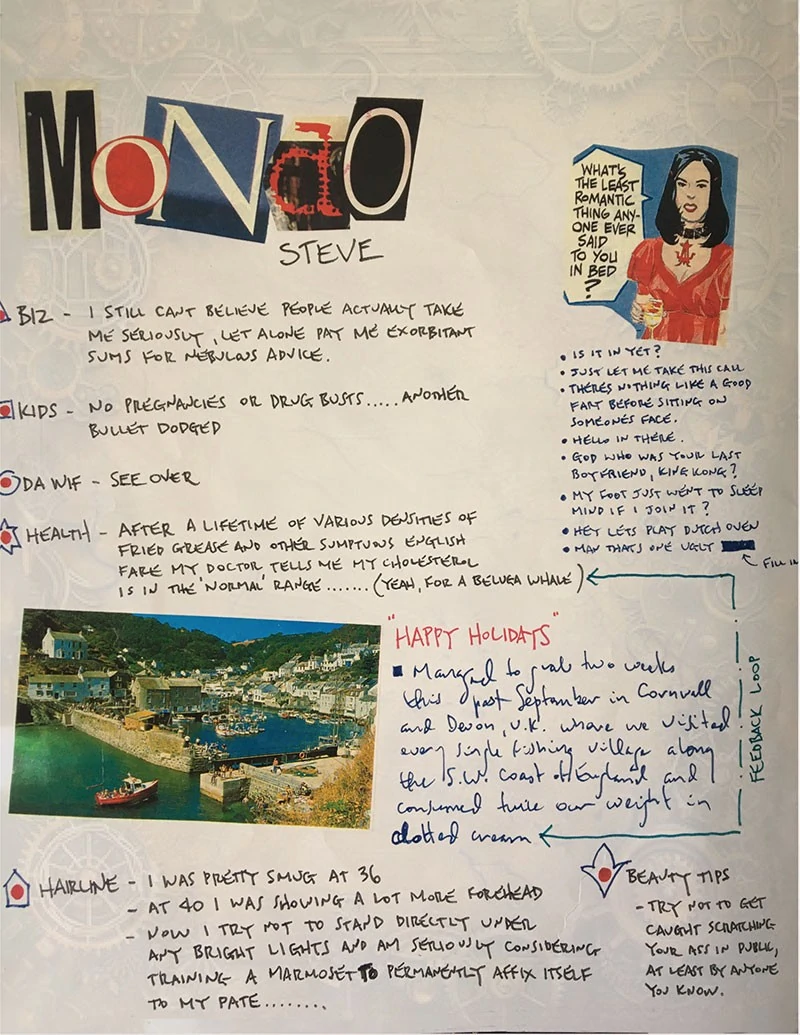 MoNdO
STEVE
BIZ - I STILL CANT BELIEVE PEOPLE ACTUALLY TAKE
ME SERIOUSLY, LET ALONE PAY ME EXORBITANT
SUMS FOR NEBULOUS ADVICE.
KIDS - NO PREGNANCIES OR DRUG BUSTS..... ANOTHER
BULLET DODGED
DA WIF - SEE OVER
HEALTH - AFTER A LIFETIME OF VARIOUS DENSITIES OF
FRIED GREASE AND OTHER SUMPTUOUS ENGLISH
FARE MY DOCTOR TELLS ME MY CHOLESTEROL
IS IN THE 'NORMAL' RANGE ....... (YEAH, FOR A BELUGA WHALE)
WHAT'S
THE LEAST
ROMANTIC
THING ANY-
ONE EVER
SAID
TO YOU
IN BED
?
• IS IT IN YET?
• JUST LET ME TAKE THIS CALL
• THERES NOTHING LIKE A GOOD
FART BEFORE SITTING ON
SOMEONES FACE.
• HELLO IN THERE.
• GOD WHO WAS YOUR LAST
BOYFRIEND, KING KONG?
• MY FOOT JUST WENT TO SLEEP
MIND IF I JOIN IT?
• HEY LETS PLAY DUTCH OVEN
• MAN THATS ONE UGLY
FILL IN
"HAPPY HOLIDAYS"
Managed to grab two weeks
this past September in Cornwall
and Devon, U.K. where we visited
every single fishing village along
the S.W. Coast of England and
consumed twice our weight in
clotted cream
FEEDBACK LOOP
HAIRLINE - I WAS PRETTY SMUG AT 36
- AT 40 I WAS SHOWING A LOT MORE FOREHEAD
- NOW I TRY NOT TO STAND DIRECTLY UNDER
ANY BRIGHT LIGHTS AND AM SERIOUSLY CONSIDERING
TRAINING A MARMOSET TO PERMANENTLY AFFIX ITSELF
TO MY PATE........
BEAUTY TIPS
- TRY NOT TO GET
CAUGHT SCRATCHING
YOUR ASS IN PUBLIC,
AT LEAST BY ANYONE
YOU KNOW.